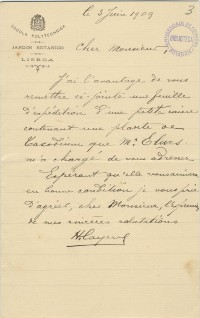 ESCOLA POLYTECHNICA
JARDIM BOTANICO
LISBOA
le 3 Juin 1909
3
Cher Monsieur,
J'ai l'avantage de vous
remettre ci-jointe une feuille
d'expédition d'une petite caisse
contenant une plante de
que Mr.
m'a chargé de vous adresser
Espérant qu'elle vous arrivera
en bonne condition je vous prie
d'agréer, cher Monsieur, l'expression
de mes sincères salutations
H. Cayeux